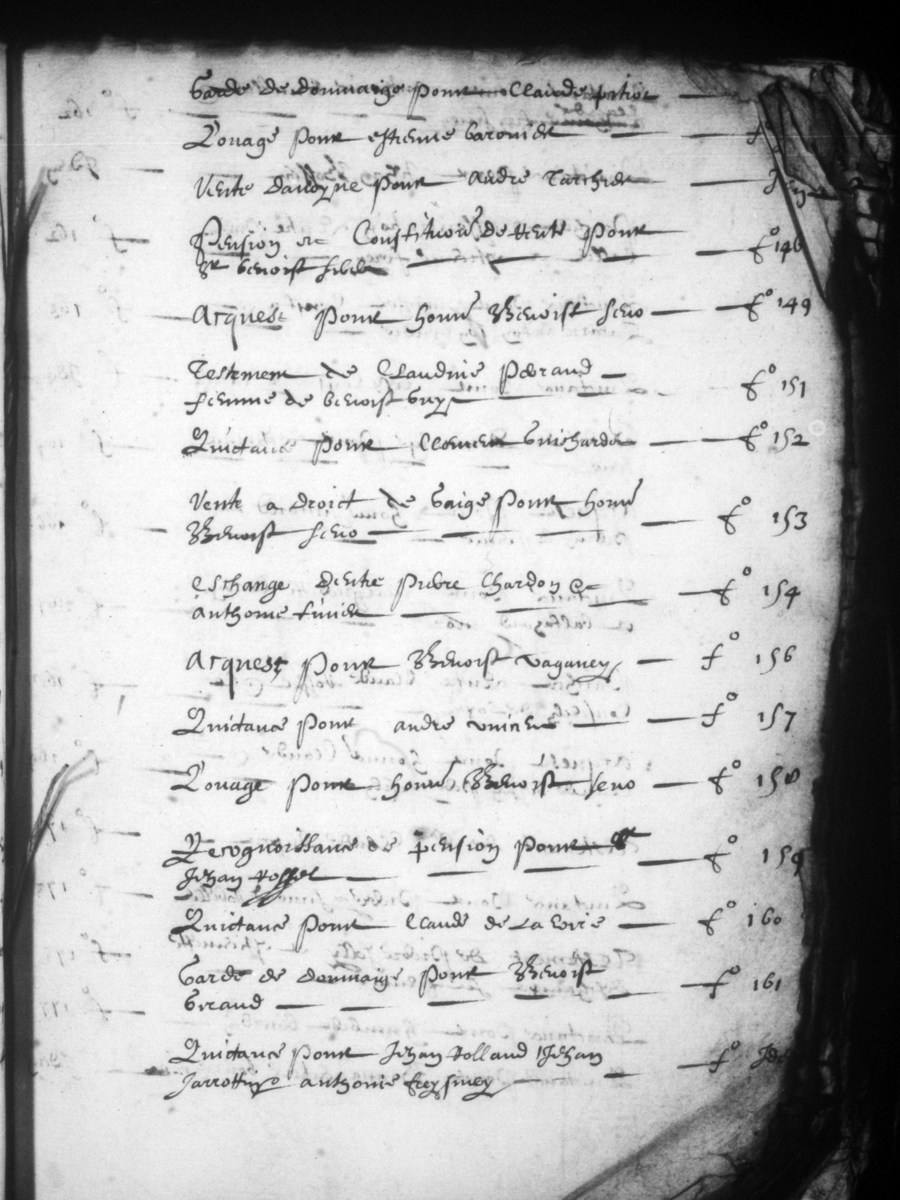 Garde de dommaige pour Claude
Louage pour estienne baronier
Vente davoyne pour andre Tarchier
Pension et Constitution de rente pour fo 148
Sr benoist
Acquest pour honne Benoist seno fo 149
Testement de Claudine Peraud
femme de benoist Guy fo 151
Quictance pour Clement Guichardet fo 152
Vente a droict de Gaige pour honne
Benoist seno fo 153
Eschange dentre Pierre Chardon et fo 154
anthoine
Acquest pour Benoist vaganey fo 156
Quictance pour andre vincent fo 157
Louage pour honne Benoist seno fo 158
Recognoissance de pension pour
Jehan Rosset fo 159
Quictance pour Claude de La voire fo 160
Garde de dommaige pour Benoist
Giraud fo 161
Quictance pour Jehan Rolland Jehan fo
anthoine